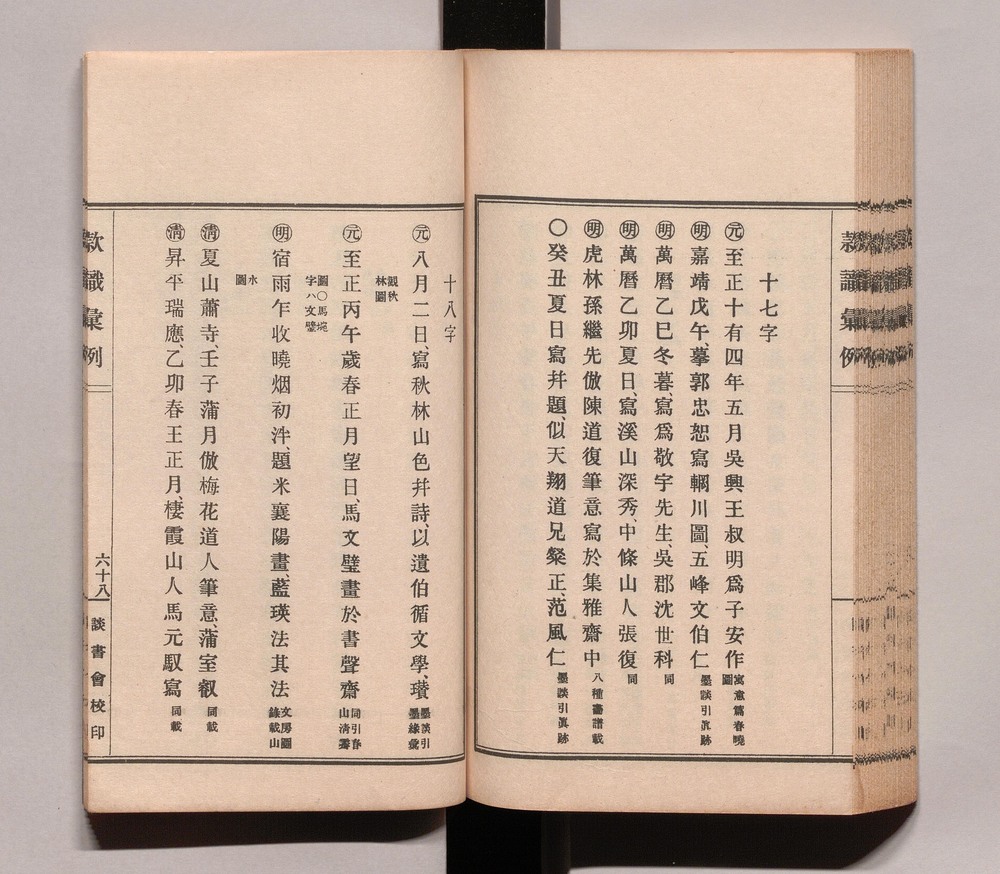 十七字
㊒元 至正十有四年五月吳興王叔明爲子安作 寓意篇春曉圖
明 嘉靖戊午、摹郭忠恕寫輞川圖、五峰文伯仁 墨談引眞跡
明 萬曆乙巳冬暮、寫爲敬宇先生、吳郡沈世科 同
明 萬曆乙卯夏日、寫溪山深秀、中條山人張復 同
明 虎林孫繼先倣陳道復筆意寫於集雅齋中 八種畫譜載
〇癸丑夏日寫幷題、似天翔道兄粲正、范風仁 墨談引眞跡
十八字
元 八月二日、寫秋林山色幷詩、以遺伯循文學、瓚 墨談引墨緣彙觀秋林圖
元 至正丙午歲春正月望日、馬文璧畫於書聲齋 同引春山淸霽圖〇馬琬字ハ文璧
明 宿雨乍收曉烟初泮、題米襄陽畫、藍瑛法其法 文房圖錄載山水圖
淸 夏山蕭寺、壬子蒲月倣梅花道人筆意、蒲室叡 同載
淸 昇平瑞應、乙卯春王正月、棲霞山人馬元馭寫 同載
款識彙例
六十八
談書會校印